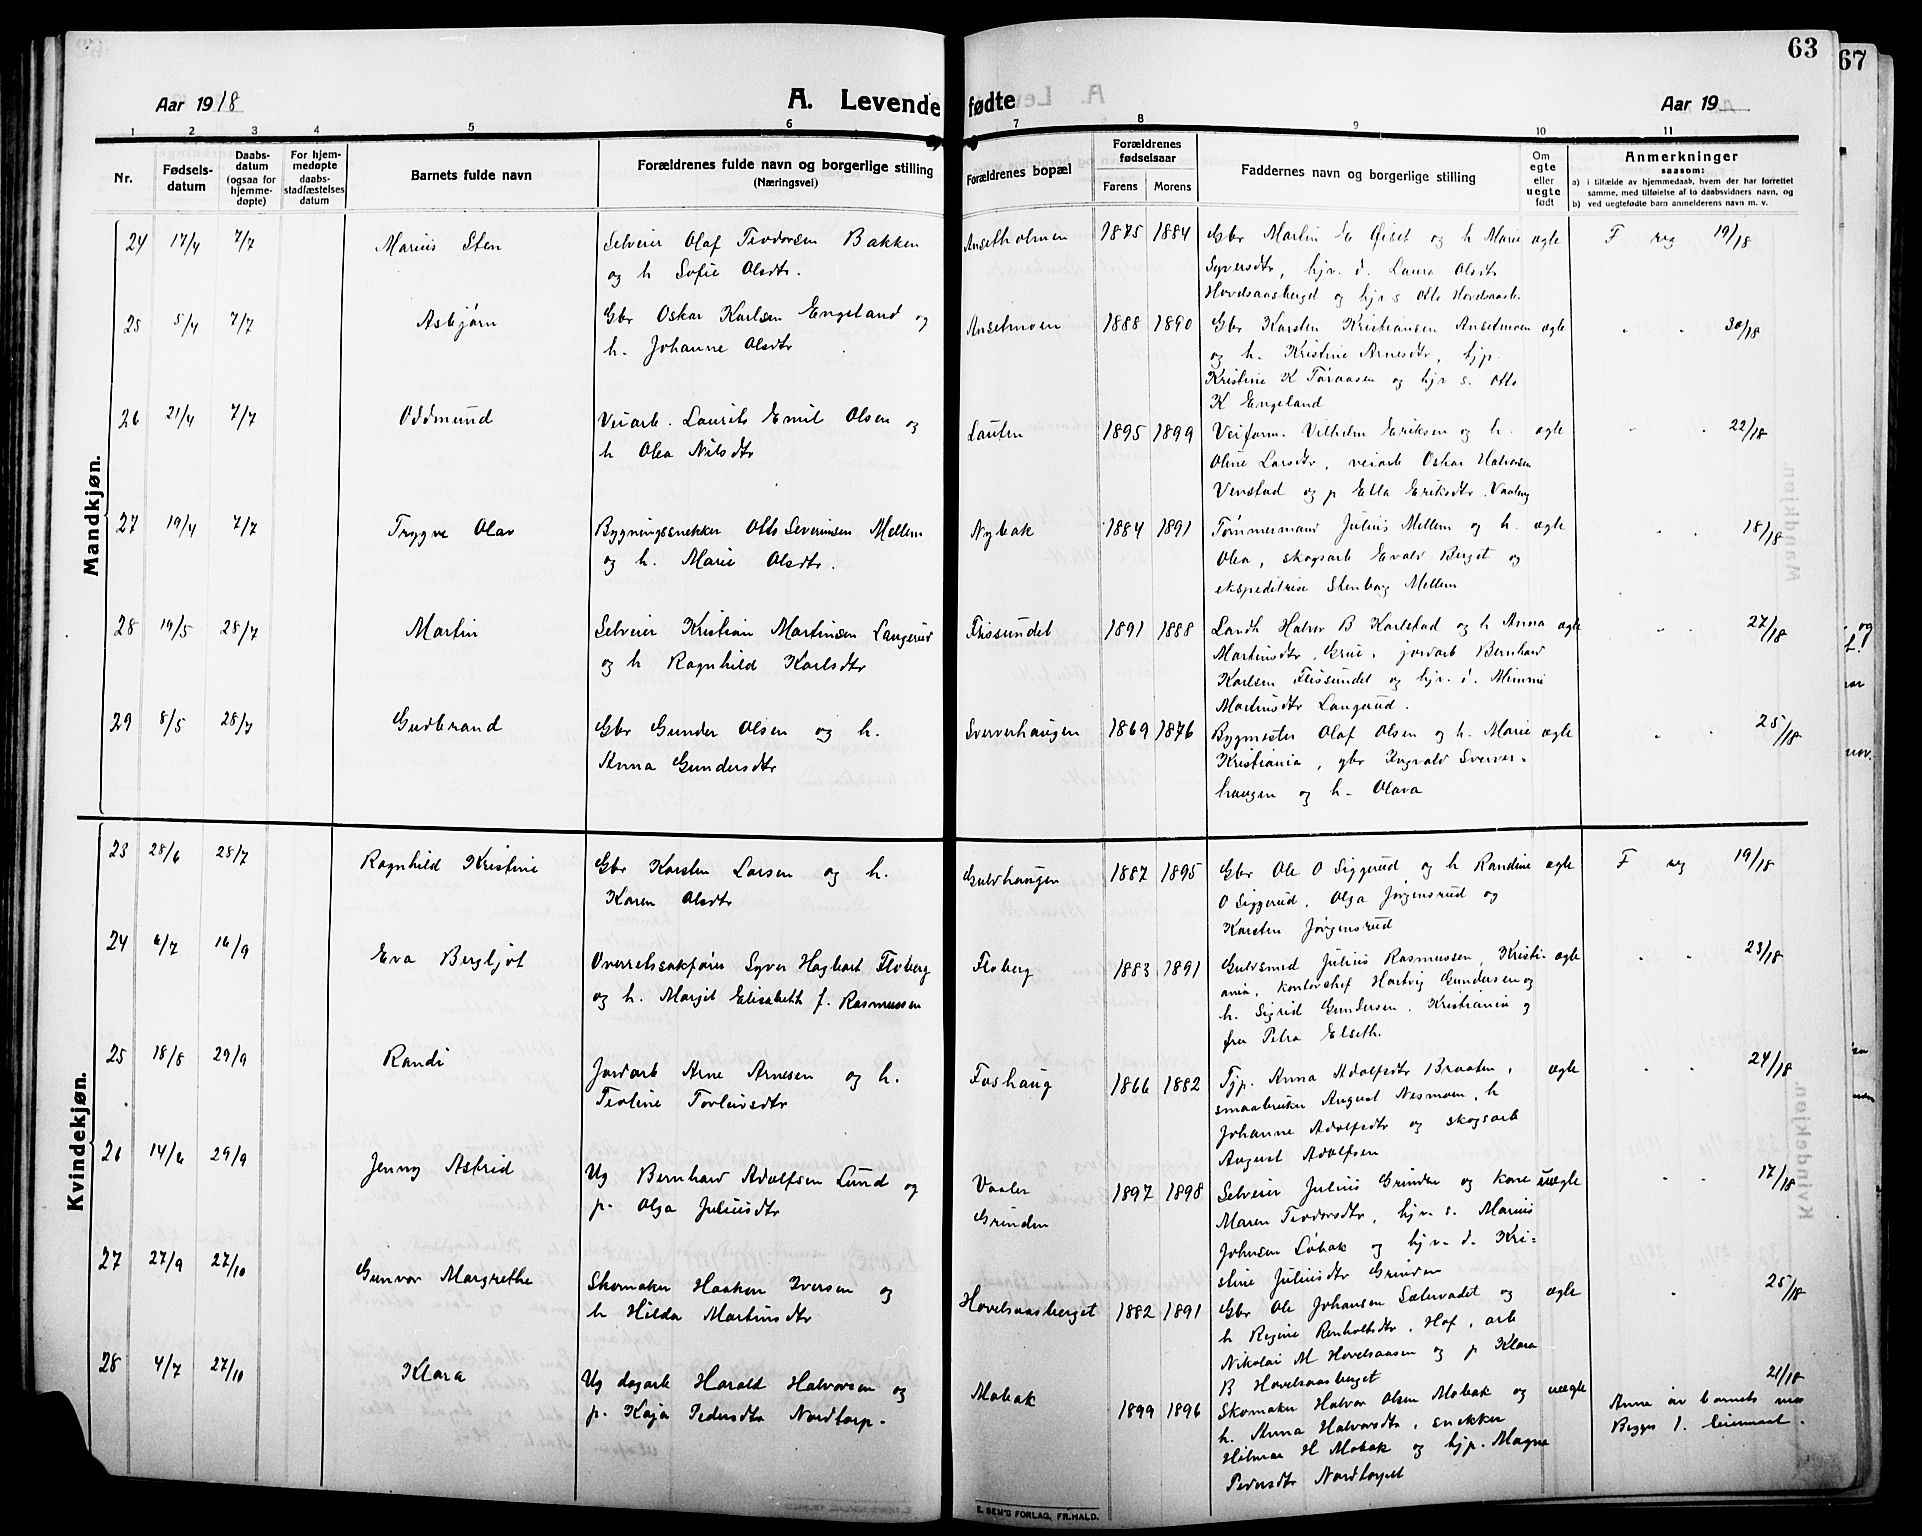 63
67
Aar 1918
A. Levende fødte
Aar 19
1 2 3 4 5 6 7 8 9 10 11
Nr.
Fødsels-
datum
Daabs-
datum
(ogsaa for
hjemme-
døpte)
For hjem-
medøpte
daabs-
stadfæstelses
datum
Barnets fulde navn
Forældrenes fulde navn og borgerlige stilling
(Næringsvei)
Forældrenes bopæl
Forældrenes
fødselsaar
Farens Morens
Faddernes navn og borgerlige stilling
Om
egte
eller
uegte
født
Anmerkninger
saasom:
a) i tilfælde av hjemmedaab, hvem der har forrettet
samme, med tilføielse af to daabsvidners navn, og
b) ved uegtefødte barn anmelderens navn m. v.
Mandkjøn.
24 17/4 7/7 Marius Sten
Selveier Olaf Teodorsen Bakken
og h Sofie Olsdtr.
Ansetholmen 1875 1884
Gbr Martin E Øiset og h Marie
Syversdtr, hjv. d. Laura Olsdtr
Hovelsaasberget og hjv s Otto Hovelsaasb.
egte F reg 19/18
25 5/4 7/7 Asbjørn
Gbr Oskar Karlsen Engeland og
h. Johanne Olsdtr
Ansetmoen 1888 1890
Gbr Karsten Kristiansen Ansetmoen
og h. Kristine Arnesdtr, hjp.
Kristine K Tøraasen og hjv s. Otto
K Engeland
egte " " 30/18
26 21/4 7/7 Oddmund
Veiarb. Laurits Emil Olsen og
h Olea Nilsdtr
Lauten 1895 1899
Veiform. Vilhelm Eriksen og h.
Oline Larsdtr, veiarb Oskar Halvorsen
Venstad og p Ella Eriksdtr, Vaaberg
egte " " 22/18
27 19/4 7/7 Trygve Olav
Bygningssnekker Otto Severinsen Mellem
og h. Marie Olsdtr.
Nybak 1884 1891
Tømmermand Julius Mellem og h.
Olea, skogsarb Evald Berget og
ekspeditrise Stenborg Mellem
egte " " 18/18
28 19/5 28/7 Martin
Selveier Kristian Martinsen Langerud
og h Ragnhild Karlsdtr
Flissundet 1891 1888
Landh Halvor B Karlstad og h Anna
Martinsdtr, Grue, jordarb Bernhard
Karlsen Flissundet og hjv. d. Mimmi
Martinsdtr Langerud.
egte " " 27/18
29 8/5 28/7 Gudbrand
Gbr Gunder Olsen og h.
Anna Gundersdtr
Sververhaugen 1869 1876
Bygmester Olaf Olsen og h. Marie
Kristiania, gbr Ingvald Sverver-
haugen og h. Olava
egte " " 25/18
Kvindekjøn.
23 28/6 28/7 Ragnhild Kristine
Gbr Karsten Larsen og h.
Karen Olsdtr
Gulvhaugen 1887 1895
Gbr Ole O Siggerud og h Randine
O Siggerud, Olga Jørgensrud og
Karsten Jørgensrud
egte F reg 19/18
24 6/7 16/9 Eva Bergljot
Overretssakfører Syver Hagbart Floberg
og h. Margit Elisabeth f. Rasmussen
Floberg 1883 1891
Guldsmed Julius Rasmussen, Kristi-
ania, kontorchef Hartvig Gundersen og
h. Sigrid Gundersen, Kristiania og
fru Petra Elseth.
egte " " 23/18
25 18/8 29/9 Randi
Jordarb Arne Arnesen og h.
Teoline Torleivsdtr
Foshaug 1866 1882
Tjp. Anna Adolfsdtr Braaten,
smaabruker August Nesmoen, h
Johanne Adolfsdtr og skogsarb
August Adolfsen
egte " " 24/18
26 14/6 29/9 Jenny Astrid
Ug Bernhard Adolfsen Lund og
p. Olga Juliusdtr
Vaaler
Grinden 1897 1898
Selveier Julius Grinden og kone
Maren Teodorsdtr, hjv. s. Marius
Johnsen Løbak og hjv. d. Kri-
stine Juliusdtr Grinden
uegte " " 17/18
27 27/9 27/10 Gunvor Margrethe
Skomaker Haakon Iversen og
h Hilda Martinsdtr
Hovelsaasberget 1882 1891
Gbr Ole Johansen Sætervadet og
h Regine Renholtsdtr, Hof, arb
Nikolai M Hovelsaasen og p Klara
B Hovelsaasberget
egte " 25/18
28 4/7 27/10 Klara
Ug dagarb Harald Halvorsen og
p. Kaja Pedersdtr Nordtorp.
Mobak 1899 1896
Skomaker Halvor Olsen Mobak og
h. Anna Halvorsdtr, snekker
Hilmar H Mobak og hjp. Magna
Pedersdtr Nordtorpet
uegte 21/18
Anm av barnets mor
Begges 1. leiermaal.
E. SEM'S FORLAG, FR.HALD.